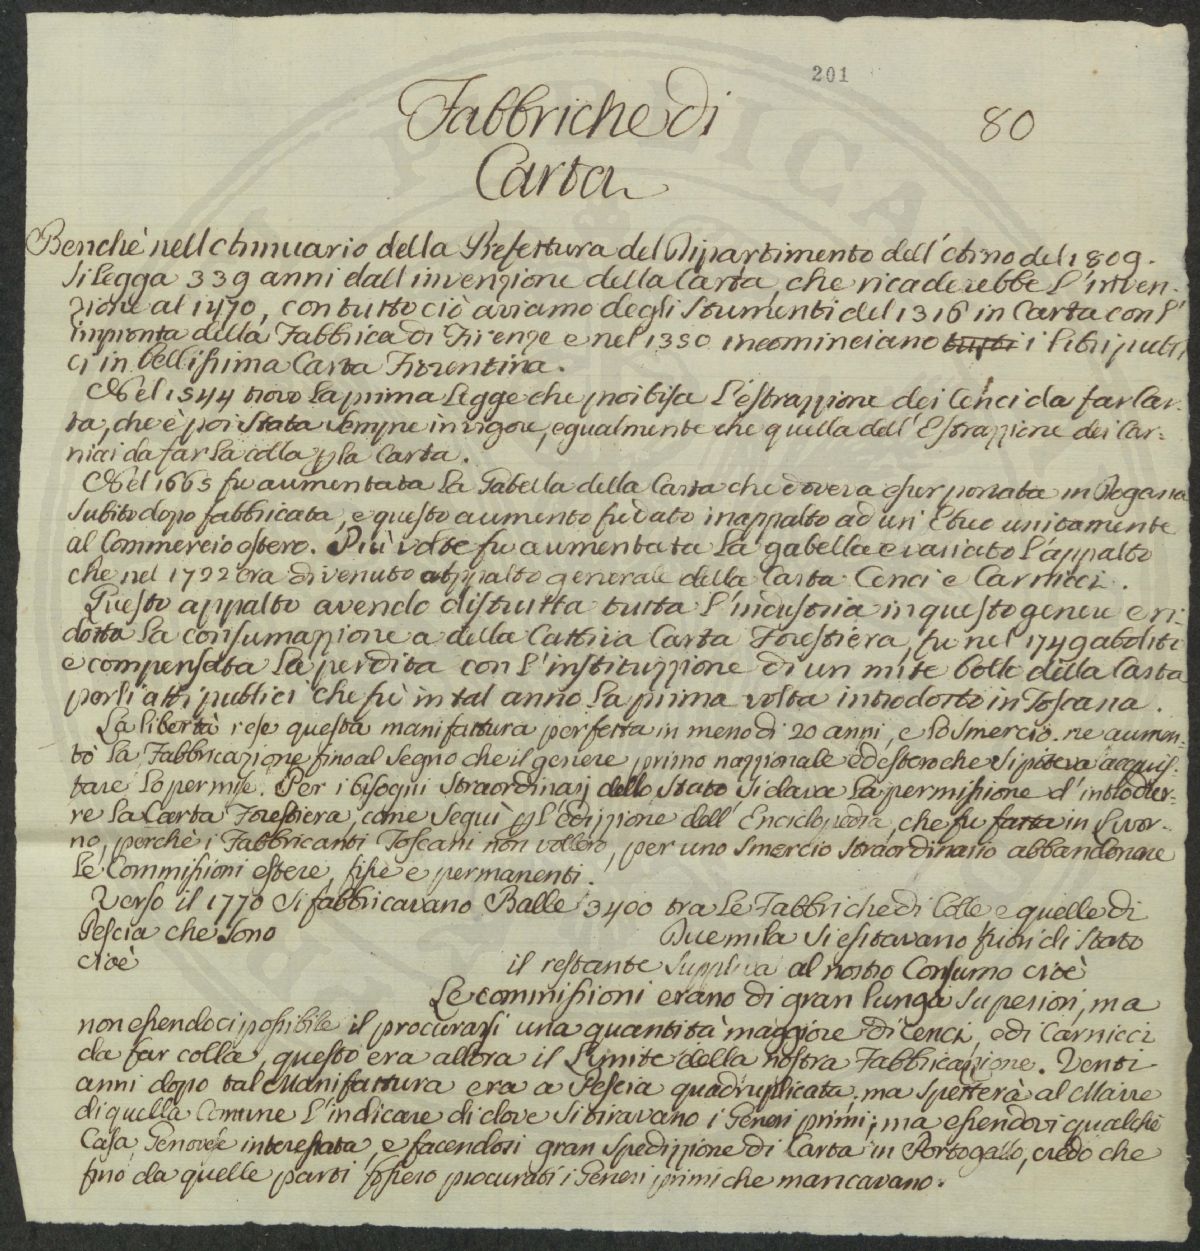 201
80
Fabbriche di
Carta
Benchè nell'Annuario della Prefettura del Dipartimento dell'Arno del 1809.
si legga 339 anni dall'invenzione della Carta, che ricaderebbe l'inven-
zione al 1470, con tutto ciò aviamo degli Strumenti del 1316 in Carta con l'
impronta della Fabbrica di Firenze e nel 1350 incominciano tutti i libri publi
ci in bellissima Carta Fiorentina.
Nel 1544 trovo la prima Legge che proibisa l'estrazzione dei Cenci da far Car-
ta, che è poi stata sempre in vigore, egualmente che quella dell'Estrazzione dei Car-
nicci da far la colla p la Carta.
Nel 1665 fu aumentata la Gabella della Carta che doveva esser portata in Dogana
subito dopo fabbricata, e questo aumento fu dato in appalto ad un Ebreo unitamente
al Commercio estero. Più volte fu aumentata la gabella e variato l'appalto
che nel 1722 era divenuto appalto generale della Carta Cenci e Carnicci.
Questo appalto avendo distrutta tutta l'industria in questo genere e ri-
dotta la consumazzione a della Cattiva Carta Forestiera, fu nel 1749 abolito
e compensata la perdita con l'instituzzione di un mite bollo della Carta
per li atti publici che fù in tal anno la prima volta introdotto in Toscana.
La libertà rese questa manifattura perfetta in meno di 20 anni, e lo smercio ne aumen-
tò la Fabbricazione fino al segno che il genere primo nazzionale ed estero che si poteva acquis-
tare lo permise. Per i bisogni straordinarj dello Stato si dava la permissione d'introdur-
re la Carta Forestiera, come seguì p l'Edizzione dell'Enciclopedia, che fu fatta in Livor-
no, perchè i Fabbricanti Toscani non vollero, per uno smercio straordinario abbandonare
le Commissioni estere, fisse e permanenti.
Verso il 1770 si fabbricavano Balle 3400 tra le Fabbriche di Colle e quelle di
Pescia che sono Due mila si esitavano fuori di Stato
cioè il restante suppliva al nostro Consumo cioè
Le commissioni erano di gran lunga superiori, ma
non essendoci possibile il procurarsi una quantità maggiore di Cenci, e di Carnicci
da far colla, questo era allora il Limite della nostra Fabbricazione. Venti
anni dopo tal Manifattura era a Pescia quadruplicata, ma spetterà al Maire
di quella Comune l'indicare di dove si tiravano i Generi primi; ma essendovi qualche
Casa Genovese interessata e facendosi gran spedizzione di Carta in Portogallo, credo che
fino da quelle parti fossero procurati i Generi primi che mancavano.